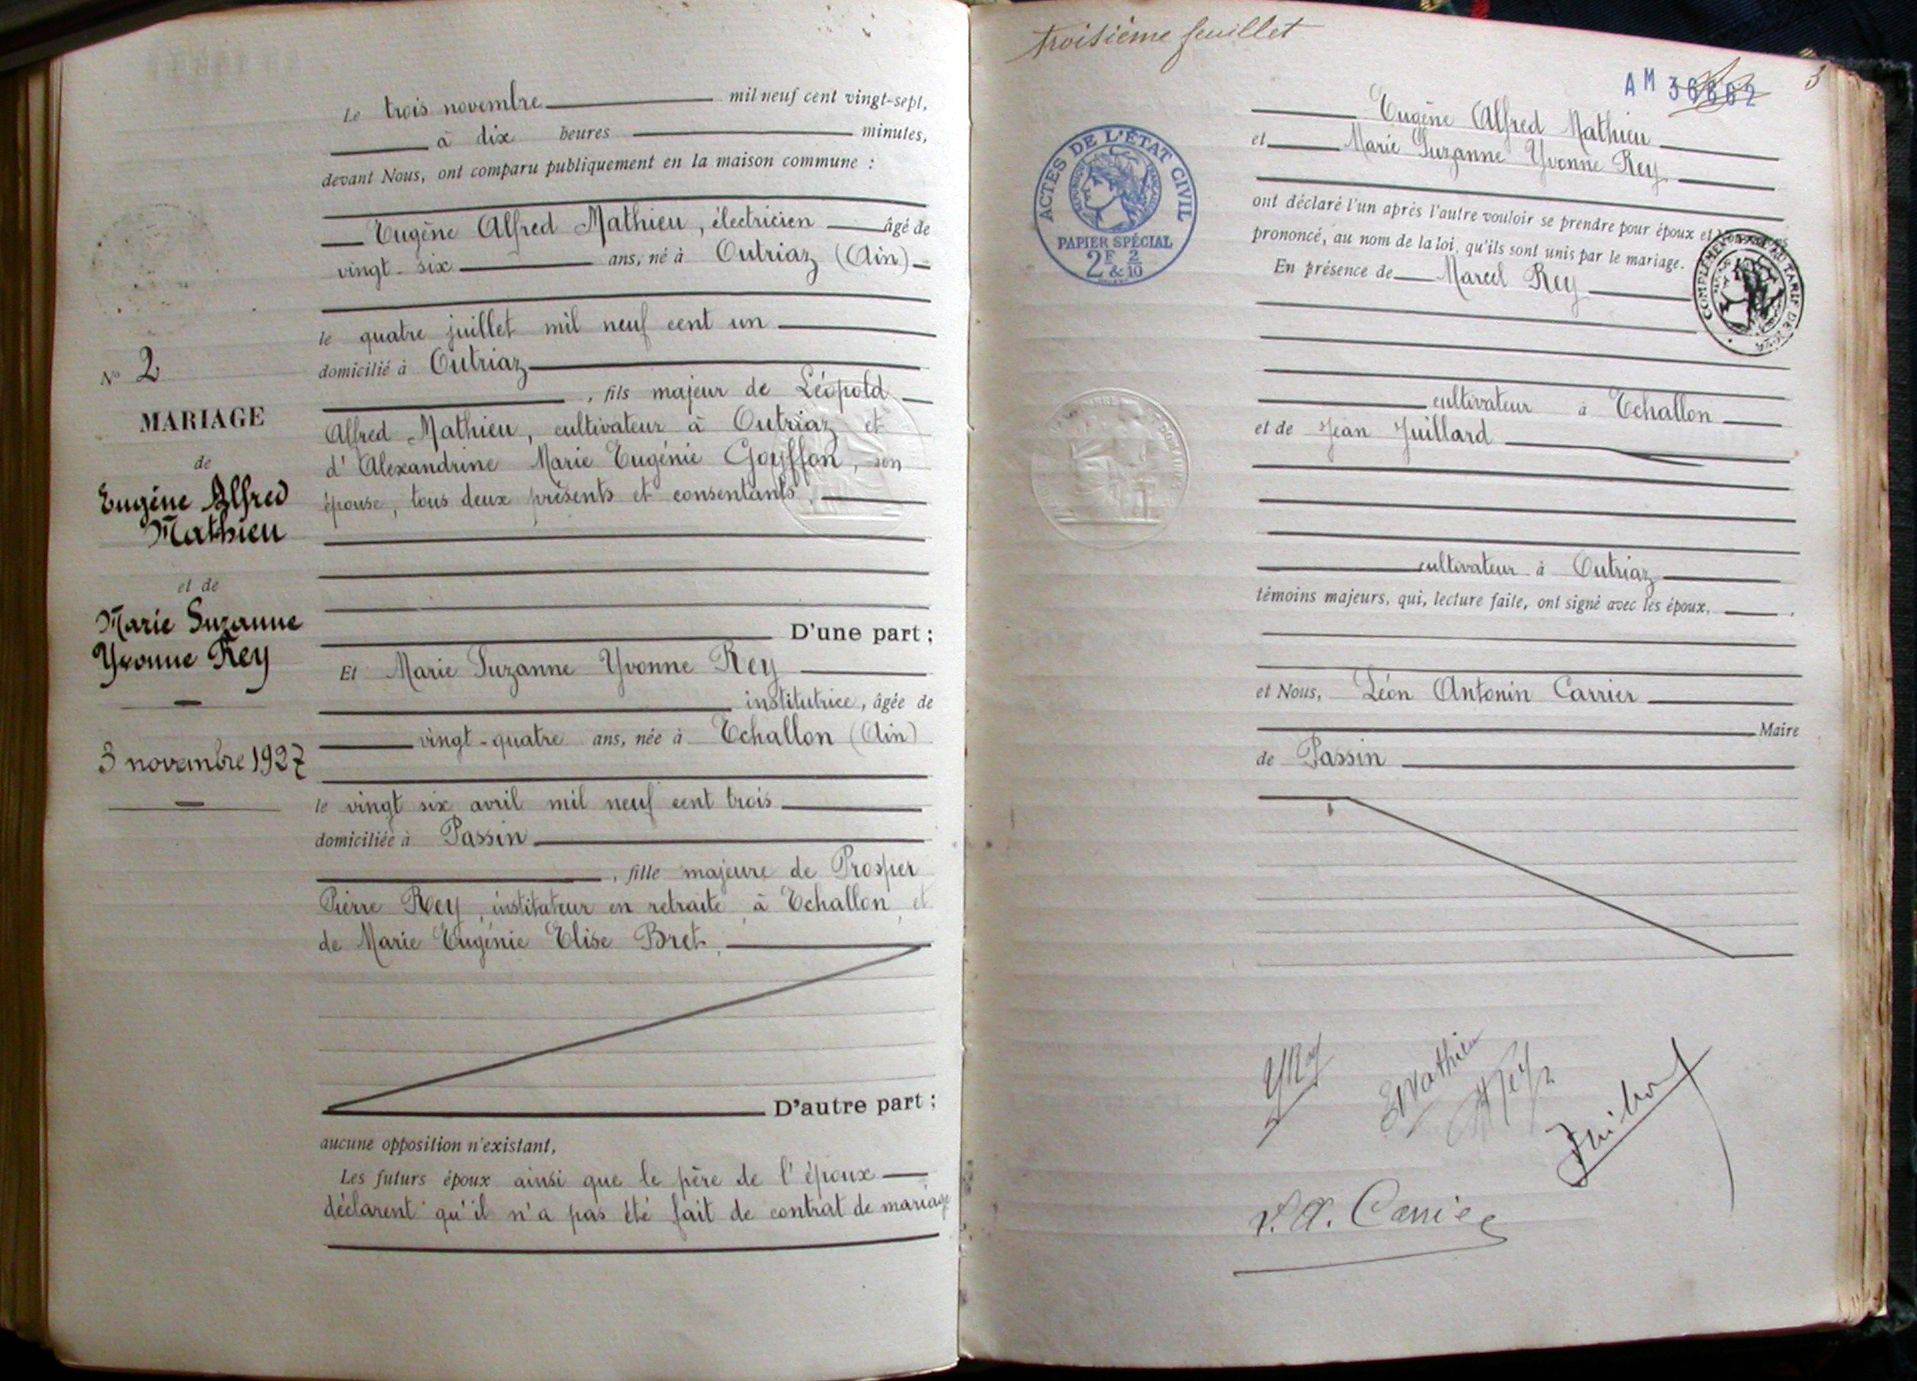 Le trois novembre mil neuf cent vingt-sept,
à dix heures minutes,
devant Nous, ont comparu publiquement en la maison commune :
Eugène Alfred Mathieu, électricien âgé de
vingt-six ans, né à Outriaz (Ain)
le quatre juillet mil neuf cent un
domicilié à Outriaz
, fils majeur de Léopold
Alfred Mathieu, cultivateur à Outriaz et
d'Alexandrine Marie Eugénie Gouffon, son
épouse, tous deux présents et consentants.
D'une part ;
Et Marie Suzanne Yvonne Rey
institutrice, âgée de
vingt-quatre ans, née à Echallon (Ain)
le vingt six avril mil neuf cent trois
domiciliée à Passin
, fille majeure de Prosper
Pierre Rey, instituteur en retraite à Echallon, et
de Marie Eugénie Elise Bret.
D'autre part ;
aucune opposition n'existant,
Les futurs époux ainsi que le père de l'époux
déclarent qu'il n'a pas été fait de contrat de mariage
N° 2
MARIAGE
de
Eugène Alfred
Mathieu
et de
Marie Suzanne
Yvonne Rey
3 novembre 1927
troisième feuillet
AM 36862
3
Eugène Alfred Mathieu
et Marie Suzanne Yvonne Rey
ont déclaré l'un après l'autre vouloir se prendre pour époux et
prononcé, au nom de la loi, qu'ils sont unis par le mariage.
En présence de Marcel Rey
cultivateur à Echallon
et de Jean Juillard
cultivateur à Outriaz
témoins majeurs, qui, lecture faite, ont signé avec les époux,
et Nous, Léon Antonin Carrier
Maire
de Passin
ACTES DE L'ÉTAT CIVIL
PAPIER SPÉCIAL
2F 2
& 10
COMPLÉMENT AU TARIF DE
YRey
EMathieu
L.A. Carrier